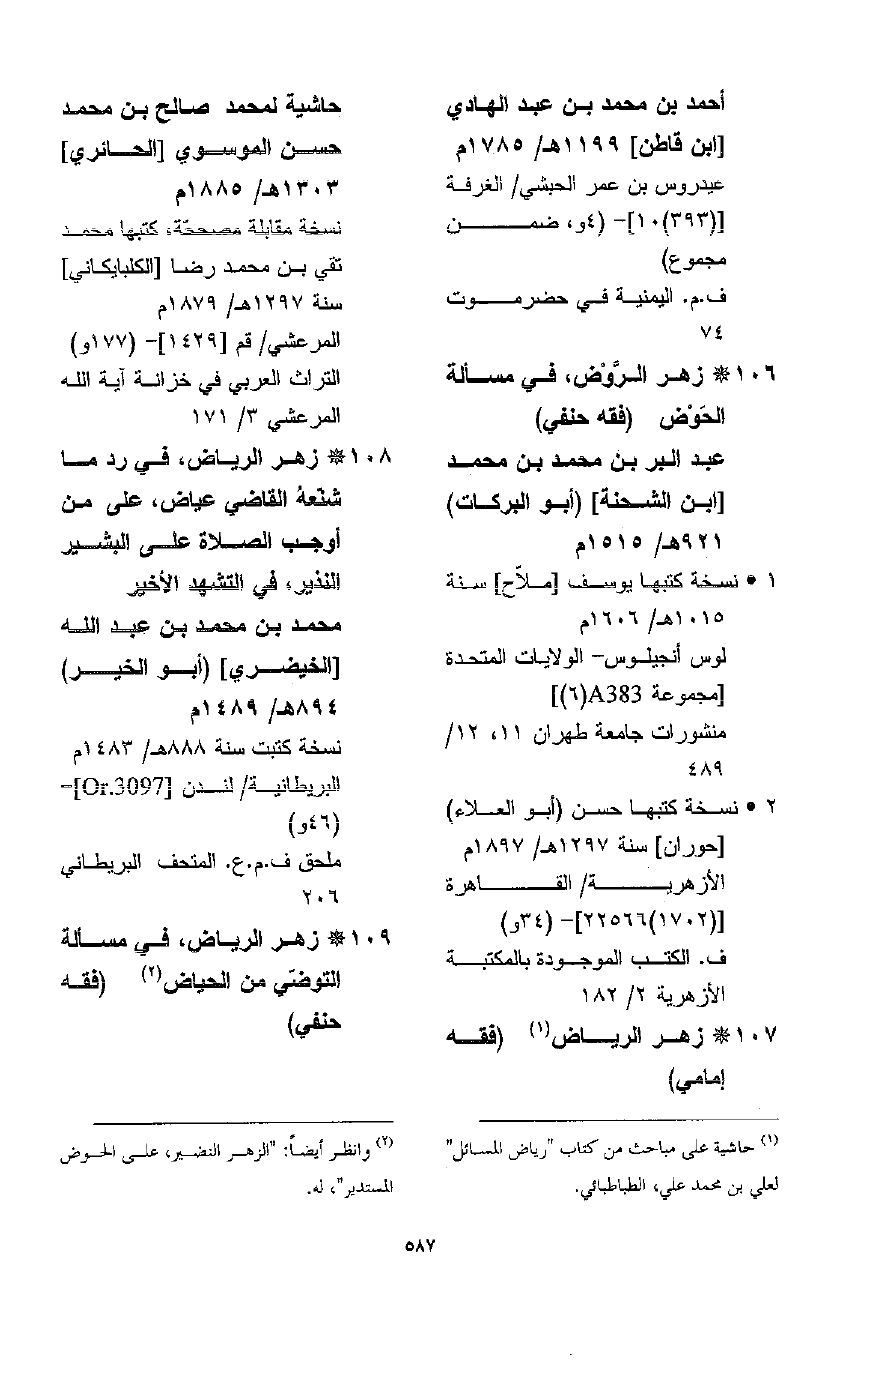 أحمد بن محمد بن عبد الهادي
[ابن قاطن] ١١٩٩هـ/ ١٧٨٥م
عيدروس بن عمر الحبشي/ الغرفة
[(٣٩٣)١٠]– (٤و، ضمن
مجموع)
ف.م. اليمنية في حضرموت
٧٤
١٠٦* زهر الرَّوْض، في مسألة
الحَوْض (فقه حنفي)
عبد البر بن محمد بن محمد
[ابن الشحنة] (أبو البركات)
٩٢١هـ/ ١٥١٥م
١ • نسخة كتبها يوسف [ملاّح] سنة
١٠١٥هـ/ ١٦٠٦م
لوس أنجيلوس– الولايات المتحدة
[مجموعة A383(٦)]
منشورات جامعة طهران ١١، ١٢/
٤٨٩
٢ • نسخة كتبها حسن (أبو العلاء)
[حوران] سنة ١٢٩٧هـ/ ١٨٩٧م
الأزهرية/ القاهرة
[(١٧٠٢)٢٢٥٦٦]– (٣٤و)
ف. الكتب الموجودة بالمكتبة
الأزهرية ٢/ ١٨٢
١٠٧* زهر الرياض(١) (فقه
إمامي)
(١) حاشية على مباحث من كتاب "رياض المسائل"
لعلي بن محمد علي، الطباطبائي.
حاشية لمحمد صالح بن محمد
حسن الموسوي [الحائري]
١٣٠٣هـ/ ١٨٨٥م
نسخة مقابلة مصححّة، كتبها محمد
تقي بن محمد رضا [الكلبايكاني]
سنة ١٢٩٧هـ/ ١٨٧٩م
المرعشي/ قم [١٤٢٩]– (١٧٧و)
التراث العربي في خزانة آية الله
المرعشي ٣/ ١٧١
١٠٨* زهر الرياض، في رد ما
شنّعهُ القاضي عياض، على من
أوجب الصلاة على البشير
النذير، في التشهد الأخير
محمد بن محمد بن عبد الله
[الخيضري] (أبو الخير)
٨٩٤هـ/ ١٤٨٩م
نسخة كتبت سنة ٨٨٨هـ/ ١٤٨٣م
البريطانية/ لندن [Or.3097]–
(٤٦و)
ملحق ف.م.ع. المتحف البريطاني
٢٠٦
١٠٩* زهر الرياض، في مسألة
التوضّي من الحياض(٢) (فقه
حنفي)
(٢) وانظر أيضاً: "الزهر النضير، على الحوض
المستدير"، له.
٥٨٧